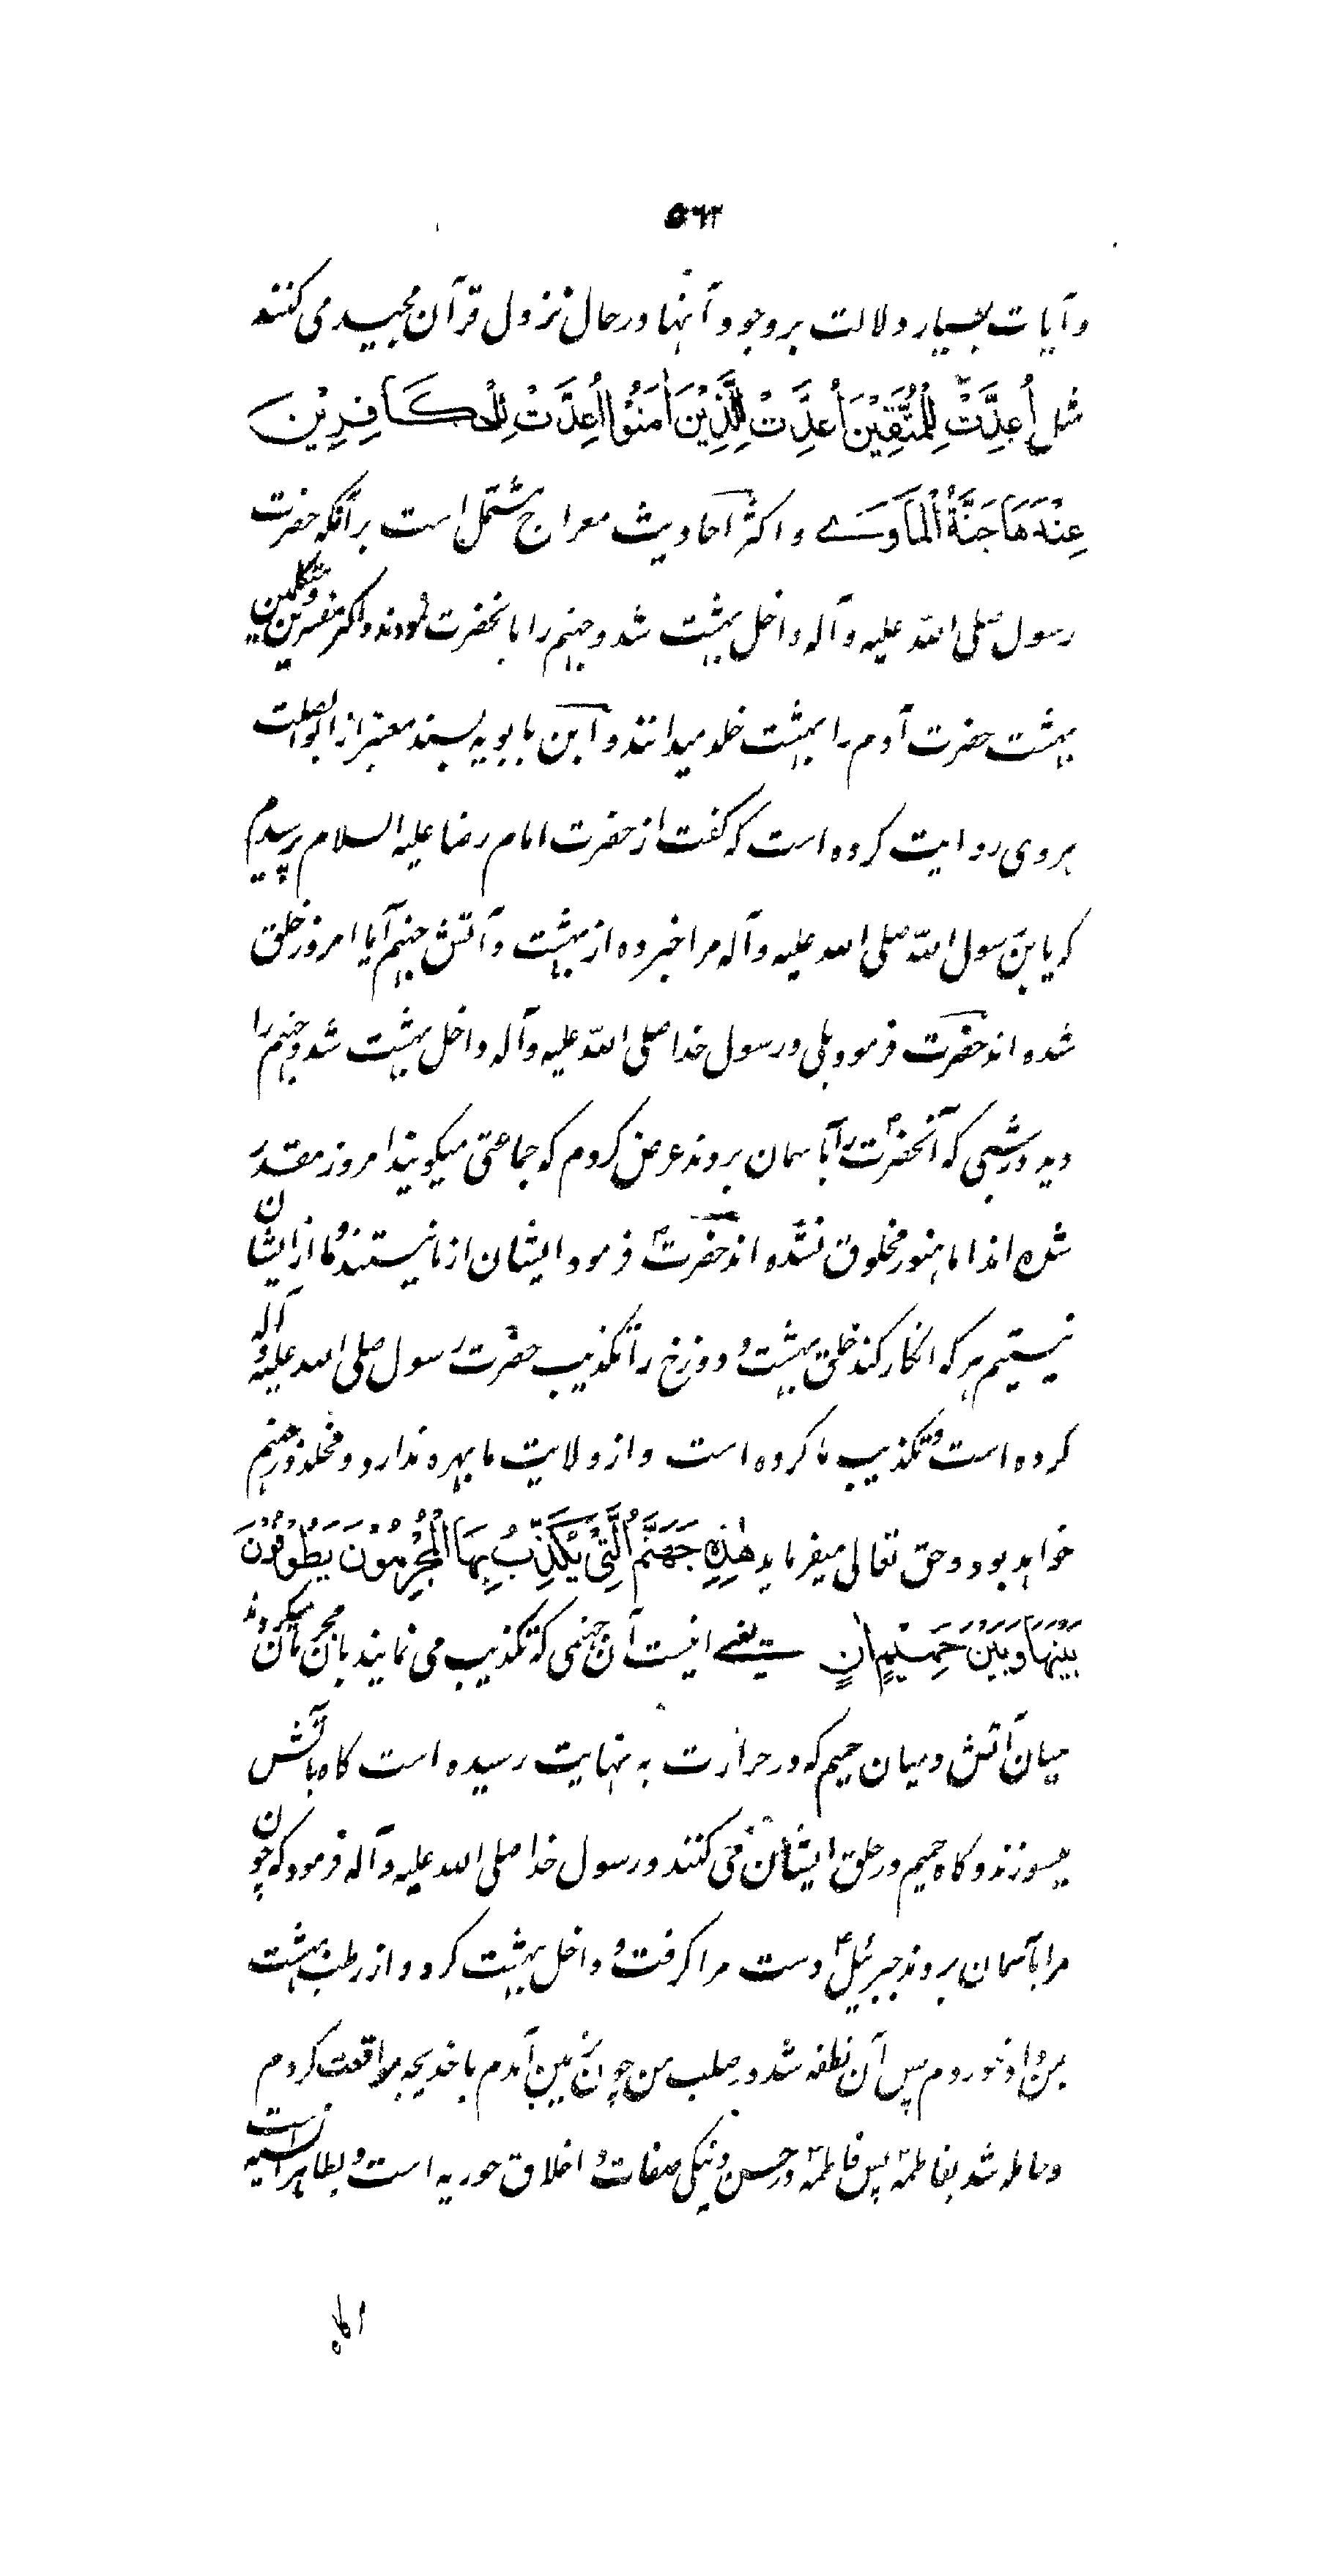 ۵۶۲
و آیات بسیار دلالت بر وجود آنها در حال نزول قرآن مجید می کنند
مثل اُعِدَّتْ لِلْمُتَّقِیْنَ اُعِدَّتْ لِلَّذِیْنَ اٰمَنُوْا اُعِدَّتْ لِلْکَافِرِیْنَ
عِنْدَهَا جَنَّةُ الْمَاْوَے و اکثر احادیث معراج مشتمل است بر آنکه حضرت
رسول صلی الله علیه و آله داخل بهشت شد و جهنم را بانحضرت نمودند و اکثر مفسرین و متکلمین
بهشت حضرت آدم را بهشت خلد میدانند و ابن بابویه بسند معتبر از ابوالصلت
هروی روایت کرده است که گفت از حضرت امام رضا علیه السلام پرسیدم
که یابن رسول الله صلی الله علیه و آله مرا خبر ده از بهشت و آتش جهنم آیا امروز خلق
شده اند حضرت فرمود بلی و رسول خدا صلی الله علیه و آله داخل بهشت شد و جهنم را
دید در شبی که آنحضرتؐ را بآسمان بردند عرض کردم که جماعتی میگویند امروز مقدر
شده اند اما هنوز مخلوق نشده اند حضرتؑ فرمود ایشان از ما نیستند و ما از ایشان
نیستیم هر که انکار کند خلق بهشت و دوزخ را تکذیب حضرت رسول صلی الله علیه و آله
کرده است و تکذیب ما کرده است و از ولایت ما بهره ندارد و مخلد در جهنم
خواهد بود و حق تعالی میفرماید هٰذِهِ جَهَنَّمُ الَّتِیْ یُکَذِّبُ بِهَا الْمُجْرِمُوْنَ یَطُوْفُوْنَ
بَیْنَهَا وَبَیْنَ حَمِیْمٍ اٰنٍ یعنے اینست آن جهنمی که تکذیب می نمایند بآن مجرمان میکردند
میان آتش و میان حمیم که در حرارت به نهایت رسیده است کاه بآتش
میسوزند و کاه حمیم در حلق ایشان می کنند و رسول خدا صلی الله علیه و آله فرمود که چون
مرا بآسمان بردند جبرئیلؑ دست مرا کرفت و داخل بهشت کرد و از رطب بهشت
بمن داد خوردم پس آن نطفه شد در صلب من چون بزمین آمدم با خدیجه مواقعت کردم
و حامله شد بفاطمهؑ پس فاطمهؑ در حسن و نیکی صفات و اخلاق حوریه است و بظاهر انسیه است